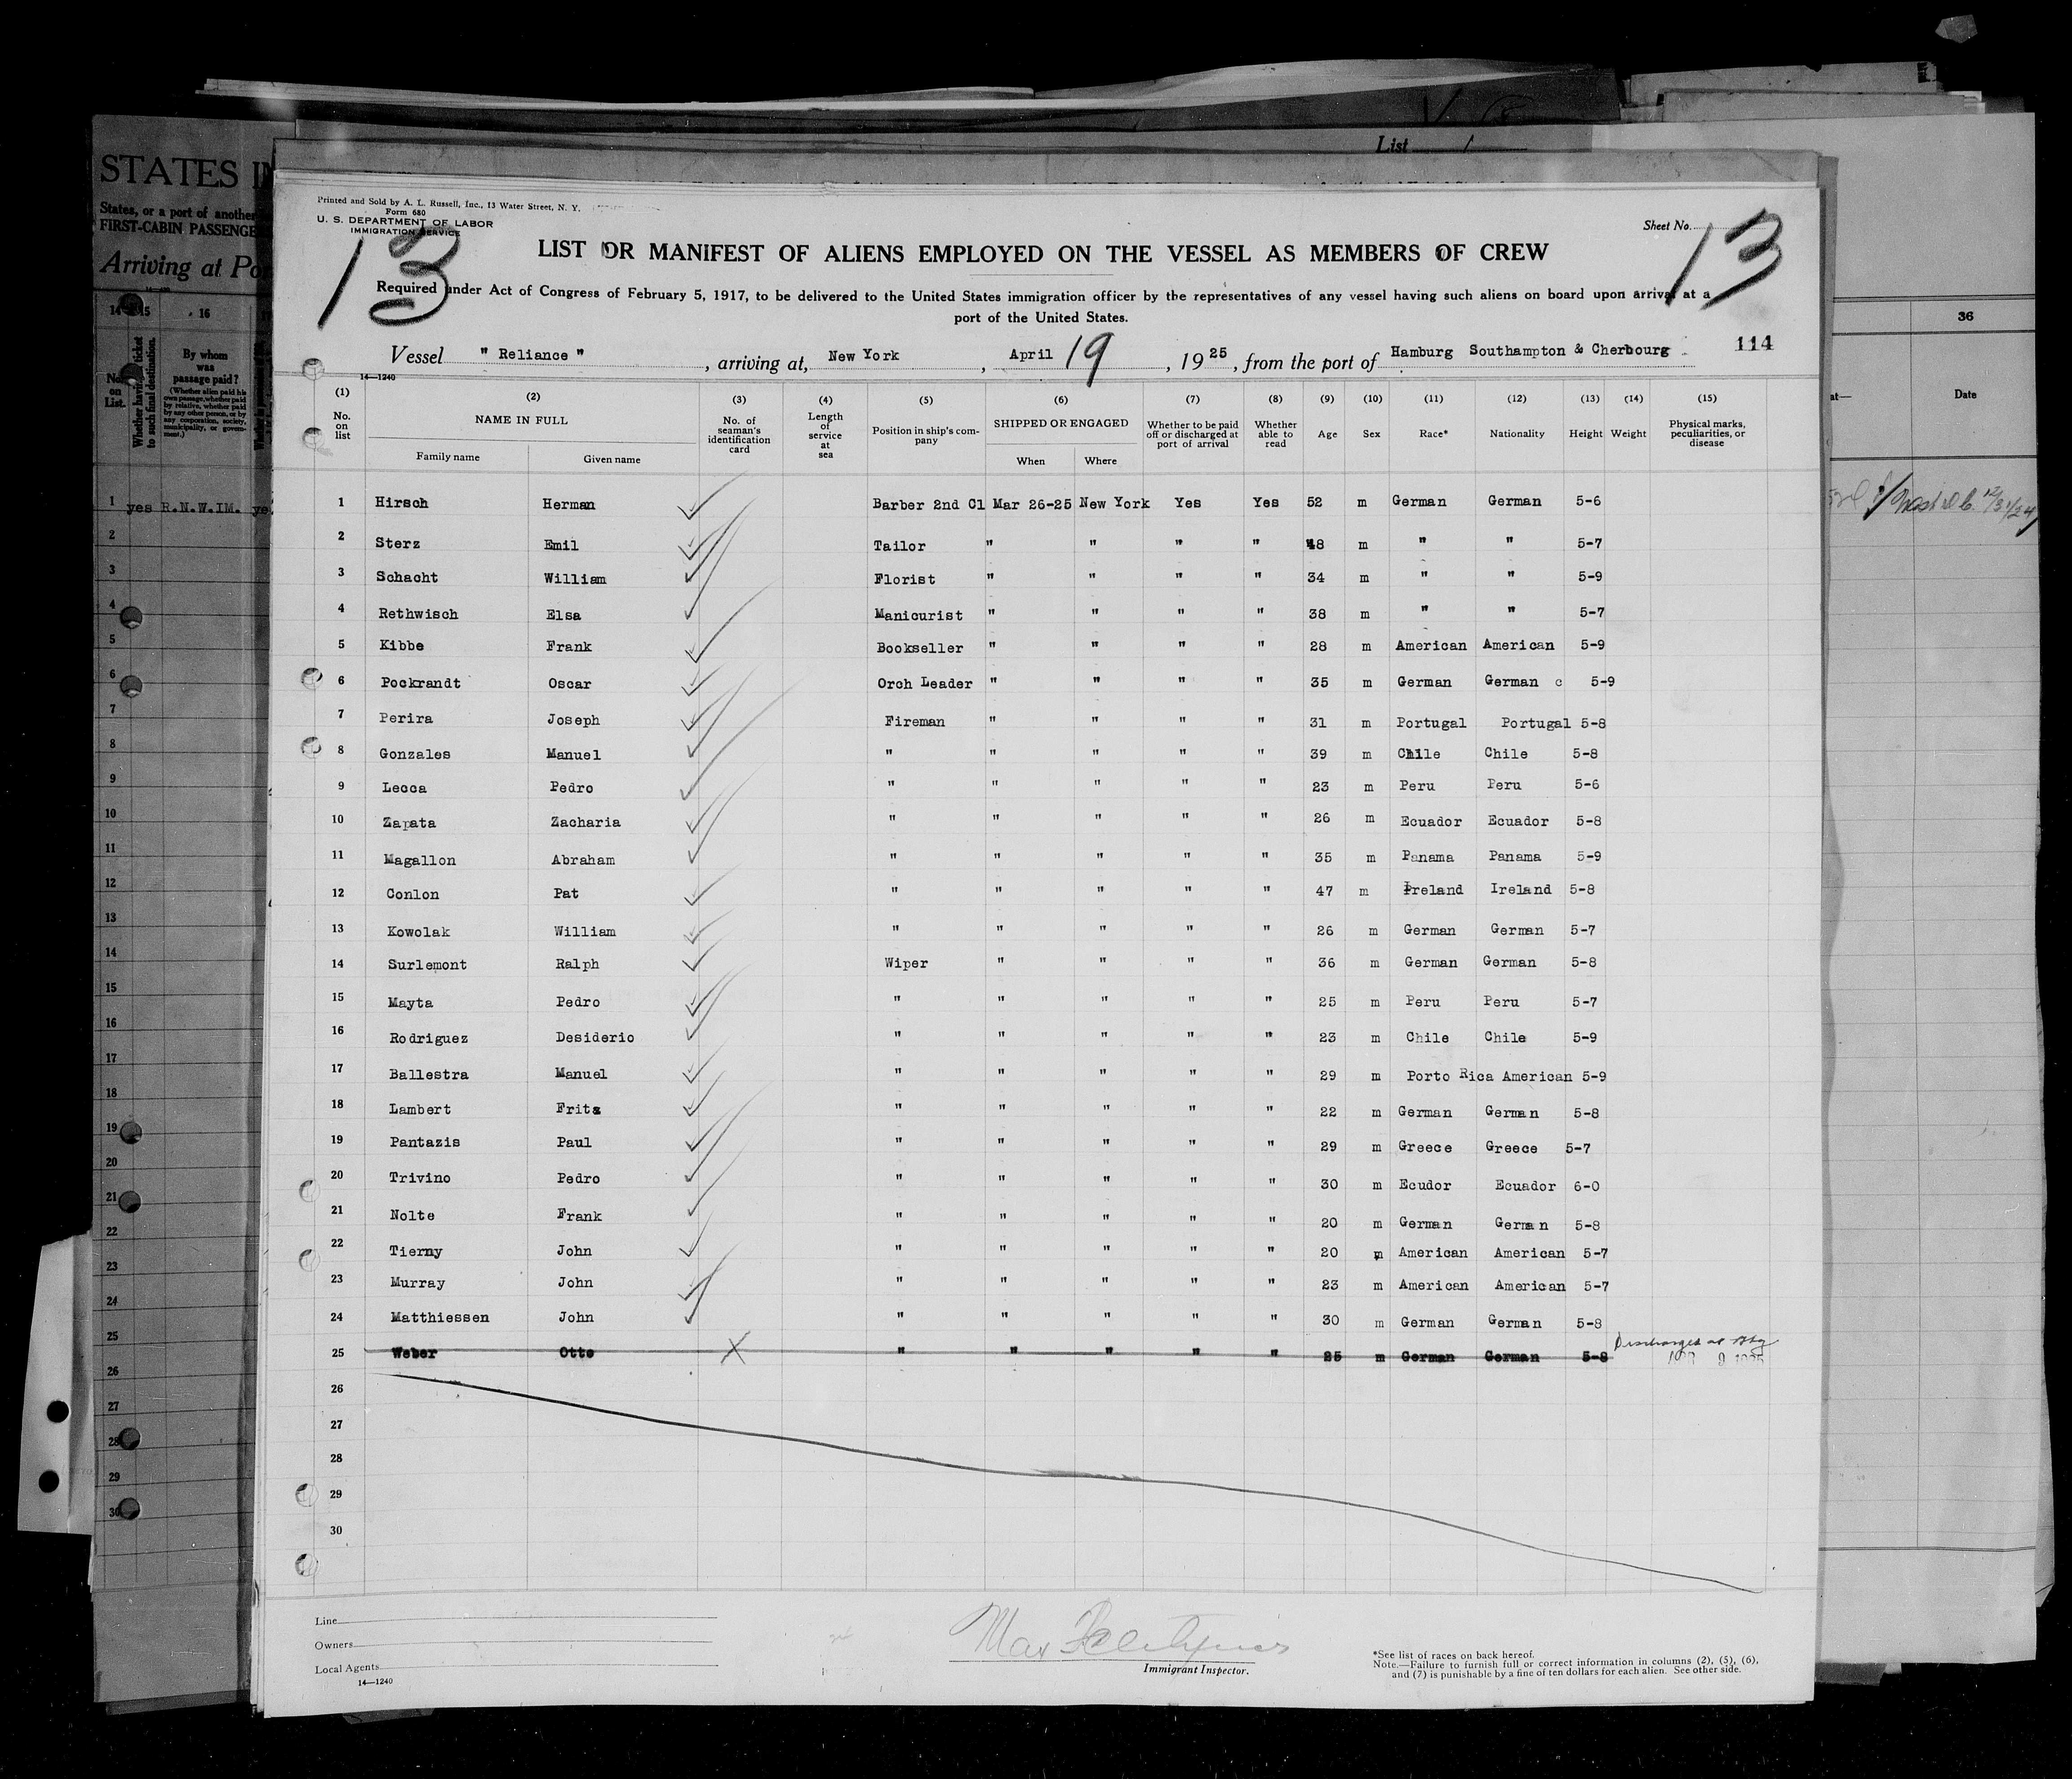 List /
STATES IN
States, or a port of another
FIRST-CABIN PASSENGE
Arriving at Por
14 15 16
No. on List.
Whether having ticket to such final destination.
By whom was passage paid?
(Whether alien paid his own passage, whether paid by relative, whether paid by any other person, or by any corporation, society, municipality, or government.)
1 yes R.N.W.IM. ye
36
Date
Printed and Sold by A. L. Russell, Inc., 13 Water Street, N. Y.
Form 680
U. S. DEPARTMENT OF LABOR
IMMIGRATION SERVICE
13
Sheet No. 13
LIST OR MANIFEST OF ALIENS EMPLOYED ON THE VESSEL AS MEMBERS OF CREW
Required under Act of Congress of February 5, 1917, to be delivered to the United States immigration officer by the representatives of any vessel having such aliens on board upon arrival at a
port of the United States.
Vessel " Reliance " , arriving at, New York , April 19 , 1925 , from the port of Hamburg Southampton & Cherbourg 114
14—1240
(1) (2) (3) (4) (5) (6) (7) (8) (9) (10) (11) (12) (13) (14) (15)
No. on list NAME IN FULL No. of seaman's identification card Length of service at sea Position in ship's company SHIPPED OR ENGAGED Whether to be paid off or discharged at port of arrival Whether able to read Age Sex Race* Nationality Height Weight Physical marks, peculiarities, or disease
Family name Given name When Where
1 Hirsch Herman Barber 2nd Cl Mar 26-25 New York Yes Yes 52 m German German 5-6
2 Sterz Emil Tailor " " " " 48 m " " 5-7
3 Schacht William Florist " " " " 34 m " " 5-9
4 Rethwisch Elsa Manicurist " " " " 38 m " " 5-7
5 Kibbe Frank Bookseller " " " " 28 m American American 5-9
6 Pockrandt Oscar Orch Leader " " " " 35 m German German c 5-9
7 Perira Joseph Fireman " " " " 31 m Portugal Portugal 5-8
8 Gonzales Manuel " " " " " 39 m Chile Chile 5-8
9 Lecca Pedro " " " " " 23 m Peru Peru 5-6
10 Zapata Zacharia " " " " " 26 m Ecuador Ecuador 5-8
11 Magallon Abraham " " " " " 35 m Panama Panama 5-9
12 Conlon Pat " " " " " 47 m Ireland Ireland 5-8
13 Kowolak William " " " " " 26 m German German 5-7
14 Surlemont Ralph Wiper " " " " 36 m German German 5-8
15 Mayta Pedro " " " " " 25 m Peru Peru 5-7
16 Rodriguez Desiderio " " " " " 23 m Chile Chile 5-9
17 Ballestra Manuel " " " " " 29 m Porto Rica American 5-9
18 Lambert Fritz " " " " " 22 m German German 5-8
19 Pantazis Paul " " " " " 29 m Greece Greece 5-7
20 Trivino Pedro " " " " " 30 m Ecudor Ecuador 6-0
21 Nolte Frank " " " " " 20 m German German 5-8
22 Tierny John " " " " " 20 m American American 5-7
23 Murray John " " " " " 23 m American American 5-7
24 Matthiessen John " " " " " 30 m German German 5-8
25 Weber Otto X " " " " " 25 m German German 5-8 Discharged at Hbg
9 1925
26
27
28
29
30
Line
Owners
Local Agents
14—1240
Max
Immigrant Inspector.
*See list of races on back hereof.
Note.—Failure to furnish full or correct information in columns (2), (5), (6),
and (7) is punishable by a fine of ten dollars for each alien. See other side.